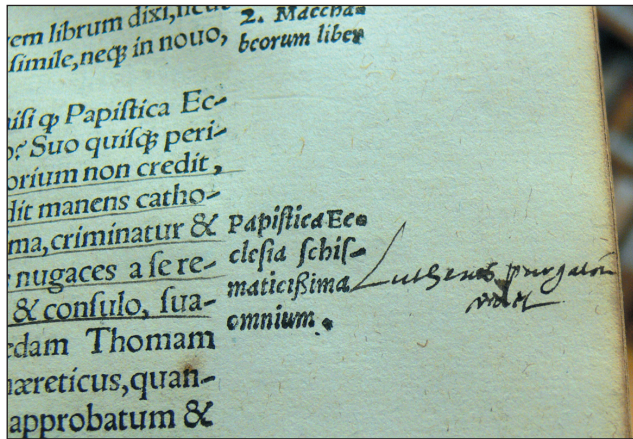 rem librum dixi, sicut
simile, neq; in nouo,
nisi ꝙ Papistica Ec-
Suo quisq; peri-
orium non credit,
dit manens catho-
ma, criminatur &
nugaces a se re-
& consulo, sua-
edam Thomam
hæreticus, quan-
approbatum &
2. Maccha-
beorum liber
Papistica Ec-
clesia schis-
maticißima
omnium.
Lutherus
videt